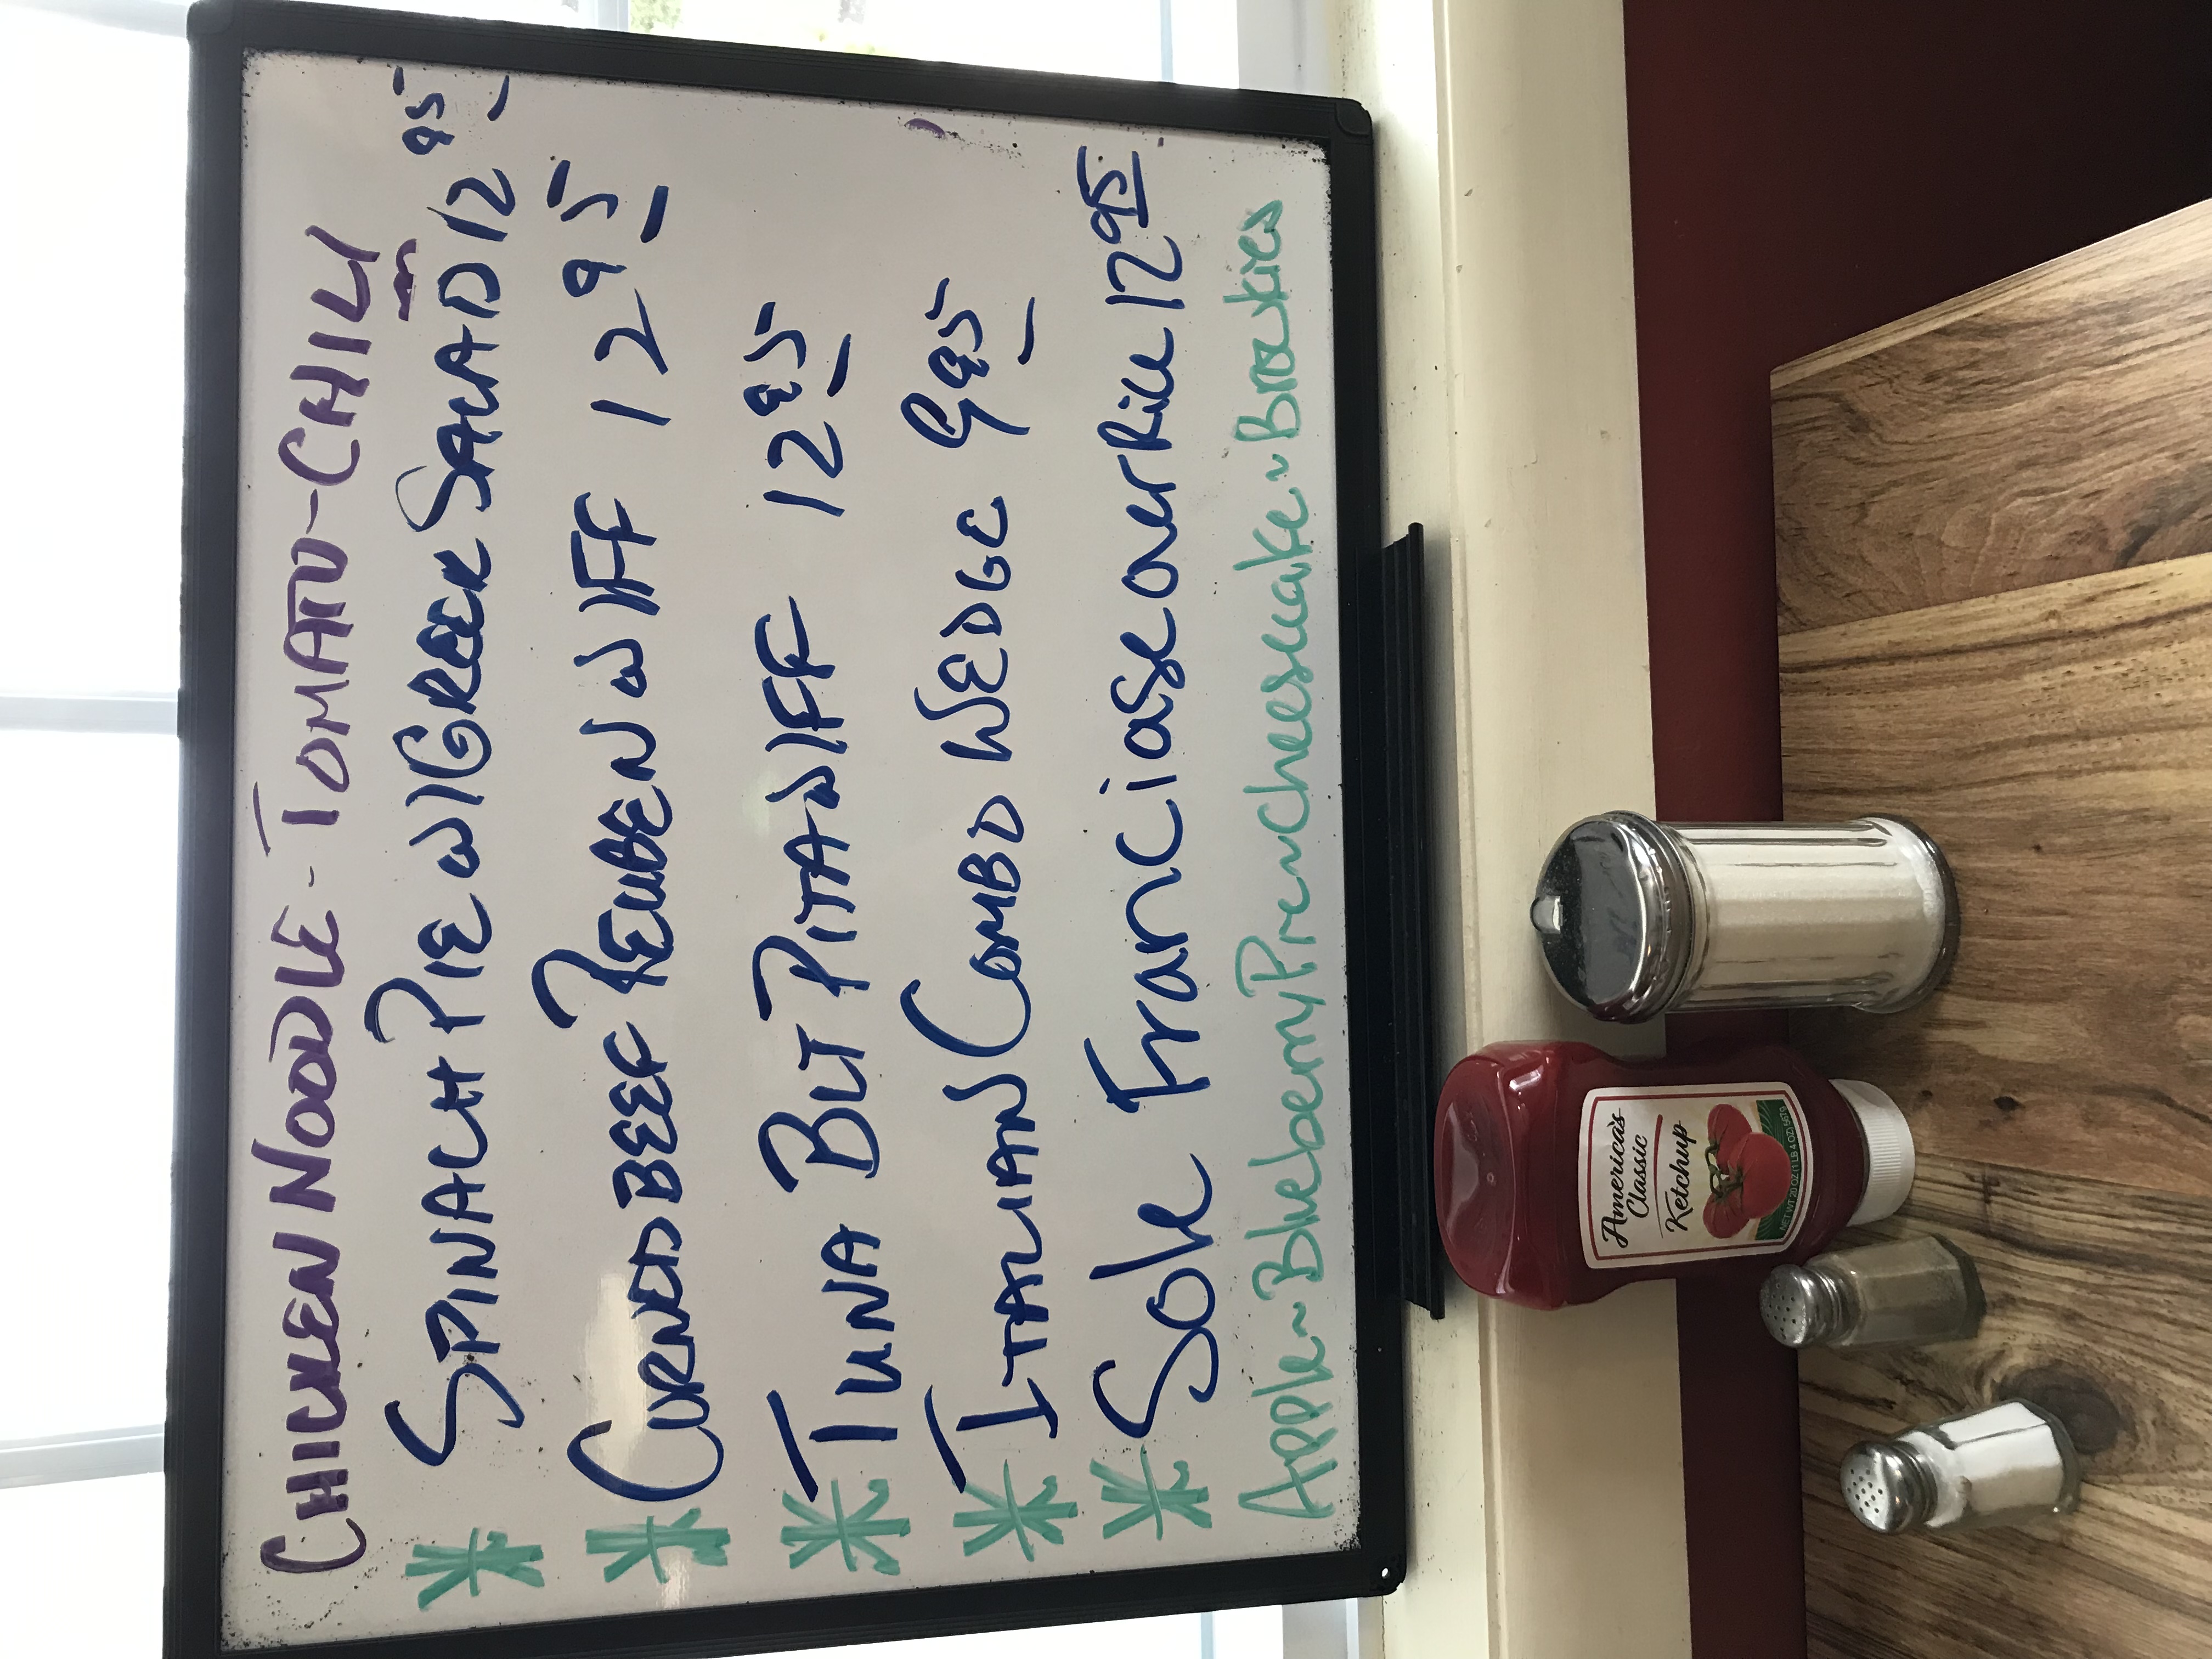 CHICKEN NOODLE - TOMATO - CHILI
* SPINACH PIE W/GREEK SALAD 12 95
* CORNED BEEF REUBEN W/FF 12 95
* TUNA BLT PITA W/FF 12 95
* ITALIAN COMBO WEDGE 9 95
* Sole Franciase over Rice 12 95
Apple~Blueberry Pie~Cheesecake~Brownies
America's
Classic
Ketchup
NET WT 20 OZ (1 LB 4 OZ) 567g